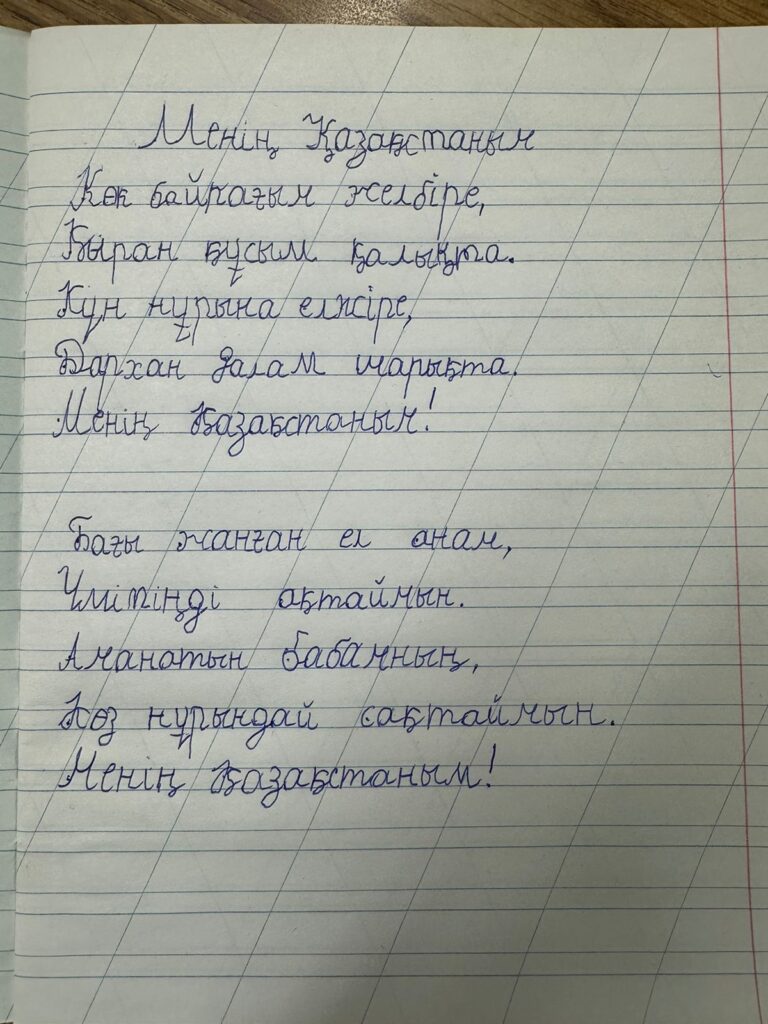 Менің Қазақстаным
Көк байрағым желбіре,
Қыран құсым қалықта.
Күн нұрына елжіре,
Дархан далам шарықта.
Менің Қазақстаным!
Бағы жанған ел анам,
Үмітіңді ақтаймын.
Аманатын бабамның,
Көз нұрындай сақтаймын.
Менің Қазақстаным!